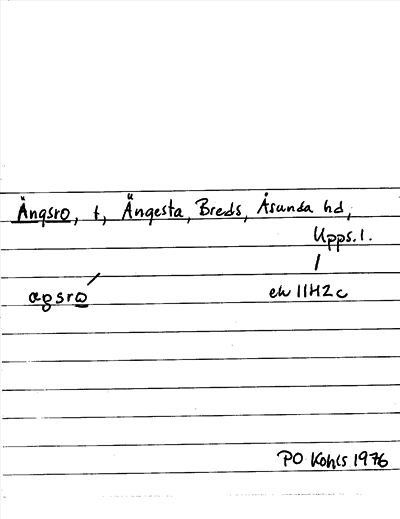 Ängsro, t, Ängesta, Breds, Åsunda hd,
Upps. l.
ek 11H2c
PO Kohls 1976